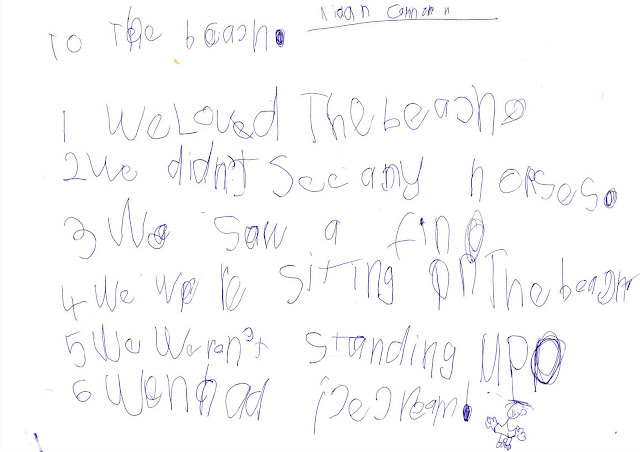 Aidan
To The beach.
1 We Loved The beach.
2 We didn't See any horses.
3 We saw a fin.
4 We were siting on The beach
5 We Weren't standing UP.
6 We had iceCream.